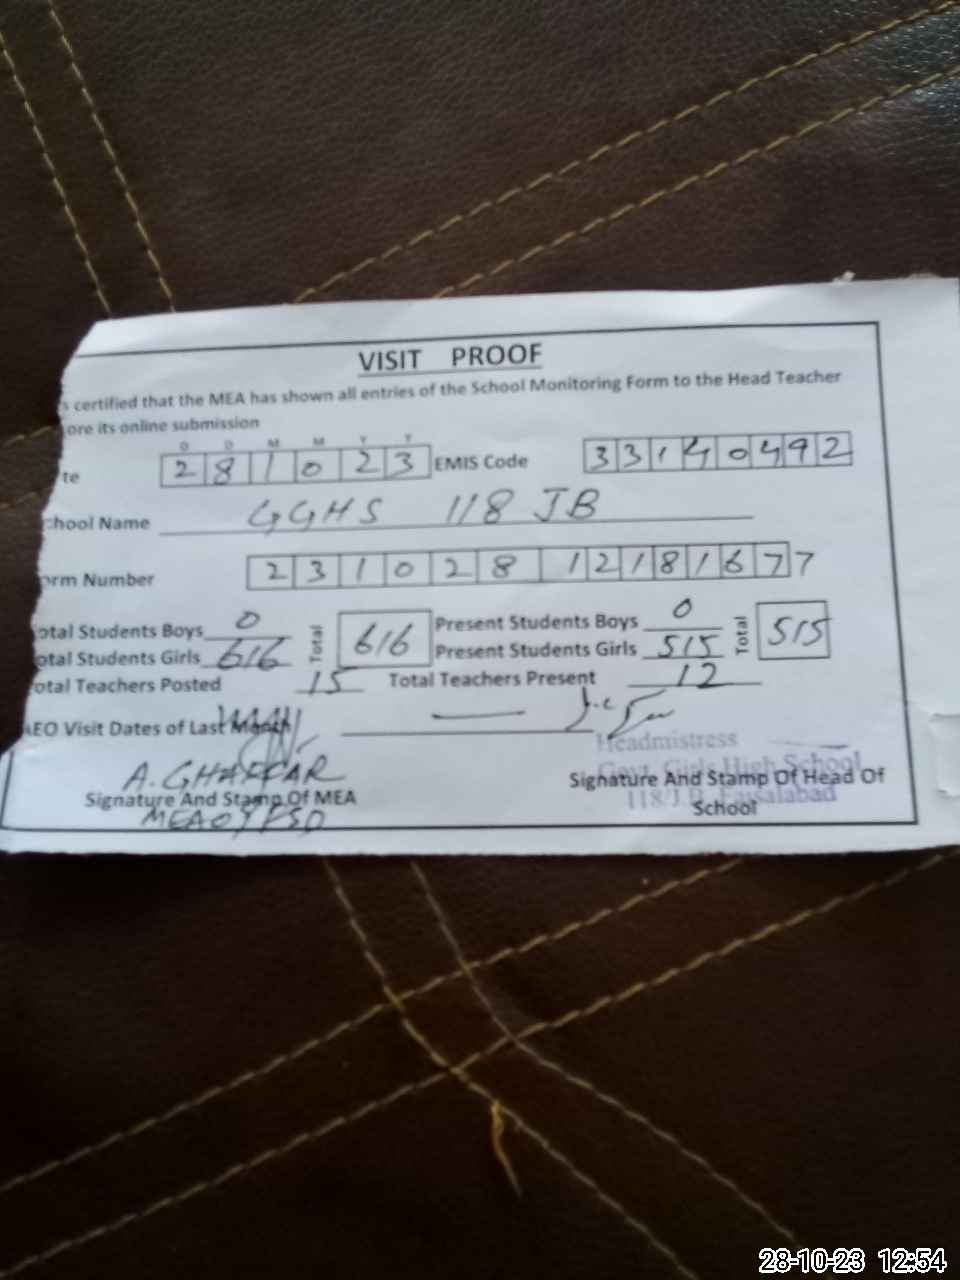 VISIT PROOF
s certified that the MEA has shown all entries of the School Monitoring Form to the Head Teacher
ore its online submission
D D M M Y Y
te 2 8 1 0 2 3 EMIS Code 3 3 1 4 0 4 9 2
chool Name GGHS 118 JB
orm Number 2 3 1 0 2 8 1 2 1 8 1 6 7 7
otal Students Boys 0 Total 616 Present Students Boys 0 Total 515
otal Students Girls 616 Present Students Girls 515
otal Teachers Posted 15 Total Teachers Present 12
AEO Visit Dates of Last Month —
Headmistress
Govt. Girls High School
118/J.B. Faisalabad
A. GHAFFAR
Signature And Stamp Of MEA
MEA07 FSD
Signature And Stamp Of Head Of
School
28-10-23 12:54